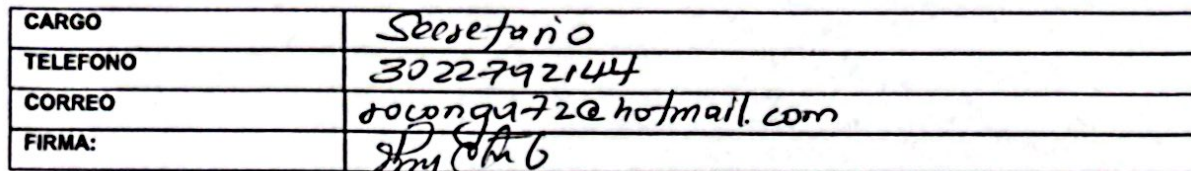 CARGO Secretario
TELEFONO 3022792144
CORREO rocongu72@hotmail.com
FIRMA: